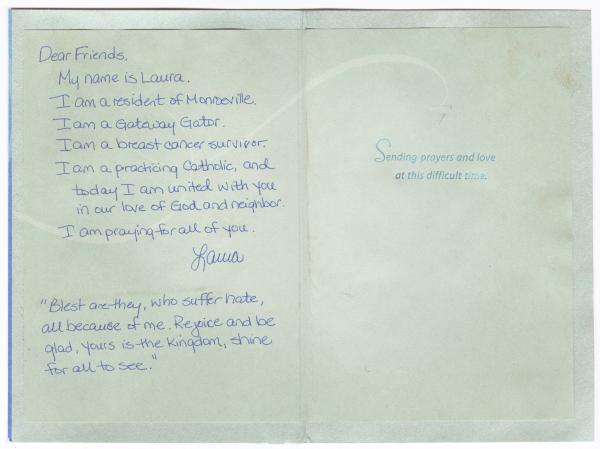 Dear Friends,
My name is Laura.
I am a resident of Monroeville.
I am a Gateway Gator.
I am a breast cancer survivor.
I am a practicing Catholic, and
today I am united with you
in our love of God and neighbor.
I am praying for all of you.
Laura
"Blest are they, who suffer hate,
all because of me. Rejoice and be
glad, yours is the kingdom, shine
for all to see."
Sending prayers and love
at this difficult time.